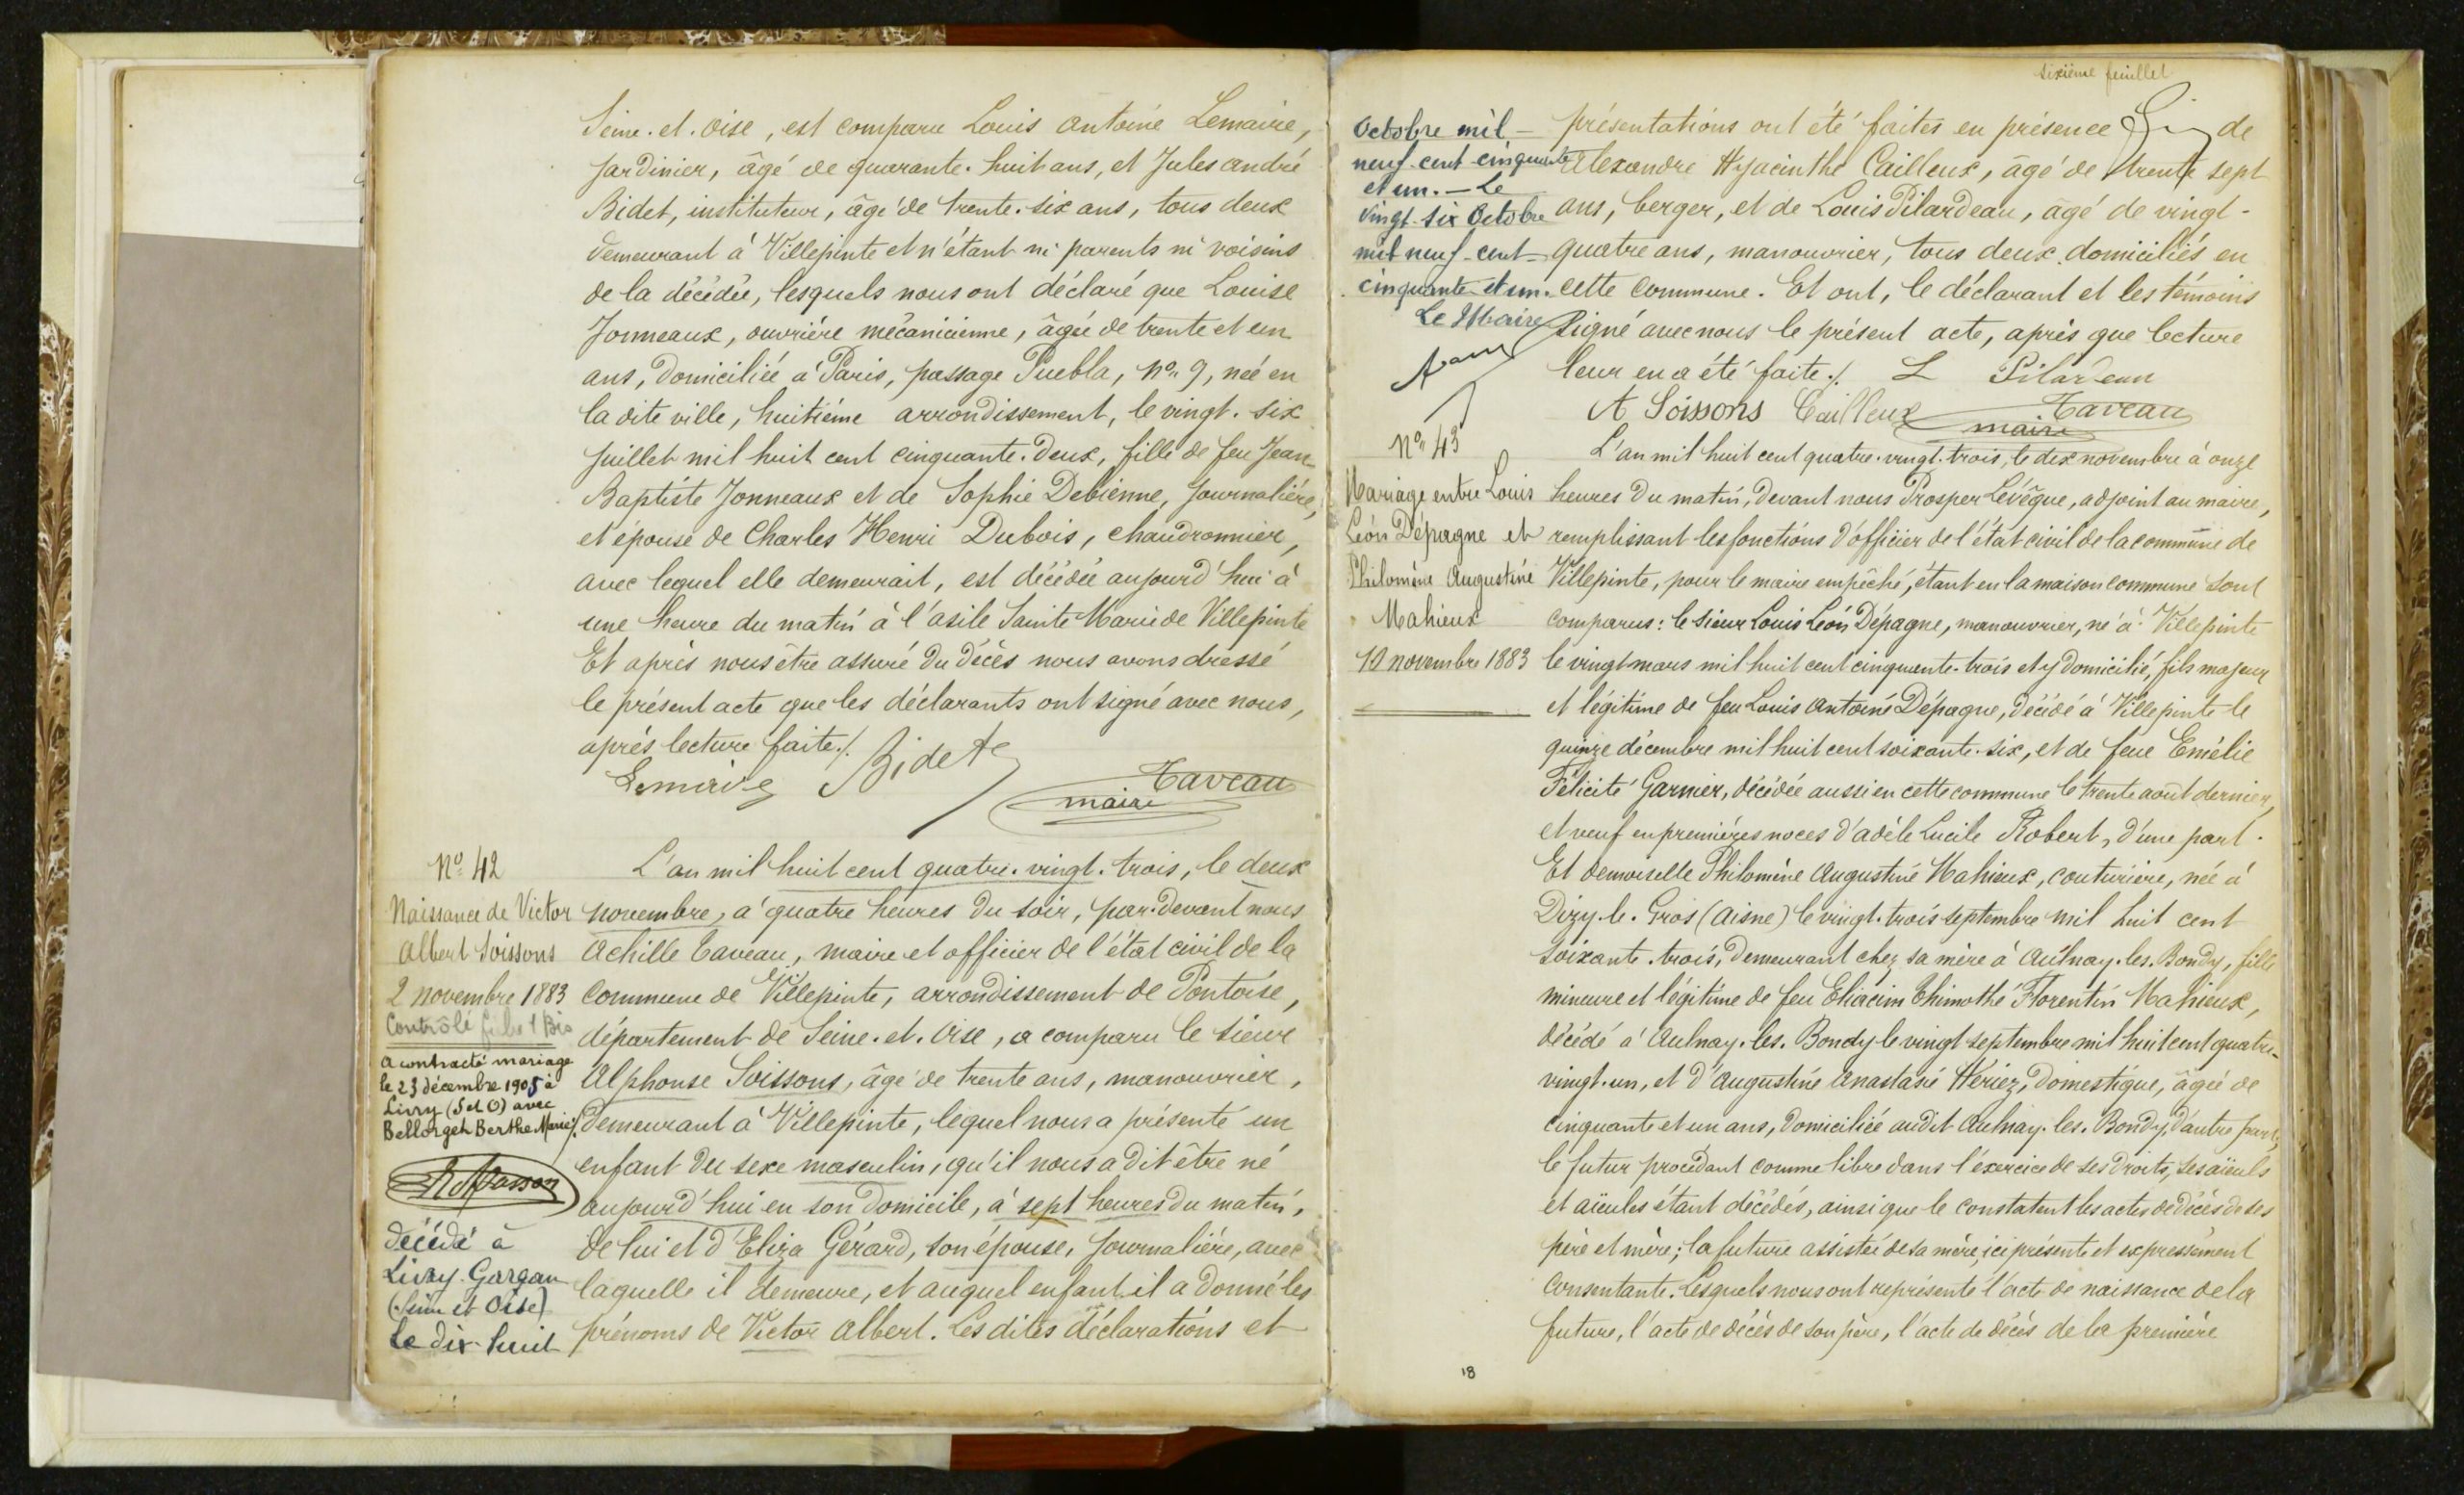 Seine. et. Oise, est comparu Louis Antoine Lemaire,
jardinier, âgé de quarante. huit ans, et Jules André
Bidet, instituteur, âgé de trente. six ans, tous deux
demeurant à Villepinte et n'étant ni parents ni voisins
de la décédée, lesquels nous ont déclaré que Louise
Jonneaux, ouvrière mécanicienne, âgée de trente et un
ans, domiciliée à Paris, passage Puebla, No. 9, née en
la dite ville, huitième arrondissement, le vingt. six
juillet mil huit cent cinquante. deux, fille de feu Jean
Baptiste Jonneaux et de Sophie Debienne, journalière,
et épouse de Charles Henri Dubois, chaudronnier,
avec lequel elle demeurait, est décédée aujourd'hui à
une heure du matin à l'asile Sainte Marie de Villepinte
Et après nous être assuré du décès nous avons dressé
le présent acte que les déclarants ont signé avec nous,
après lecture faite./.
Lemaire Bidet Taveau
maire
No 42
Naissance de Victor
Albert Soissons
2 novembre 1883
Contrôlé
a contracté mariage
le 23 décembre 1905 à
Livry (S et O) avec
Bellorget Berthe Marie./.
décédé à
Livry-Gargan
(Seine et Oise)
le dix-huit
L'an mil huit cent quatre. vingt. trois, le deux
novembre, à quatre heures du soir, par. devant nous
Achille Taveau, maire et officier de l'état civil de la
commune de Villepinte, arrondissement de Pontoise,
département de Seine. et. Oise, a comparu le sieur
Alphonse Soissons, âgé de trente ans, manouvrier,
demeurant à Villepinte, lequel nous a présenté un
enfant du sexe masculin, qu'il nous a dit être né
aujourd'hui en son domicile, à sept heures du matin,
de lui et d'Eliza Gérard, son épouse, journalière, avec
laquelle il demeure, et auquel enfant il a donné les
prénoms de Victor Albert. Les dites déclarations et
sixième feuillet
Octobre mil-
neuf-cent-cinquante
et un. - Le
vingt-six Octobre
mil neuf-cent-
cinquante et un.
Le Maire
présentations ont été faites en présence de
Alexandre Hyacinthe Cailleux, âgé de trente sept
ans, berger, et de Louis Pilardeau, âgé de vingt-
quatre ans, manouvrier, tous deux domiciliés en
cette commune. Et ont, le déclarant et les témoins
signé avec nous le présent acte, après que lecture
leur en a été faite./. L Pilardeau
A Soissons Cailleux Taveau
maire
No. 43
Mariage entre Louis
Léon Dépagne et
Philomène Augustine
Mahieux
10 novembre 1883
L'an mil huit cent quatre. vingt. trois, le dix novembre à onze
heures du matin, devant nous Prosper Lévêque, adjoint au maire,
remplissant les fonctions d'officier de l'état civil de la commune de
Villepinte, pour le maire empêché, étant en la maison commune sont
comparus: le sieur Louis Léon Dépagne, manouvrier, né à Villepinte
le vingt mars mil huit cent cinquante. trois et y domicilié, fils majeur
et légitime de feu Louis Antoine Dépagne, décédé à Villepinte le
quinze décembre mil huit cent soixante. six, et de feue Emélie
Félicité Garnier, décédée aussi en cette commune le trente aout dernier,
et veuf en premières noces d'Adèle Lucile Robert, d'une part.
Et demoiselle Philomène Augustine Mahieux, couturière, née à
Dizy. le. Gros (Aisne) le vingt. trois septembre mil huit cent
soixante. trois, demeurant chez sa mère à Aulnay. les. Bondy, fille
mineure et légitime de feu Eliacim Thimothé Florentin Mahieux,
décédé à Aulnay. les. Bondy le vingt septembre mil huit cent quatre-
vingt. un, et d'Augustine Anastasie Hériez, domestique, âgée de
cinquante et un ans, domiciliée au dit Aulnay. les. Bondy, d'autre part,
le futur procédant comme libre dans l'exercice de ses droits, ses aïeuls
et aïeules étant décédés, ainsi que le constatent les actes de décès de ses
père et mère; la future assistée de sa mère, ici présente et expressément
consentante. Lesquels nous ont représenté l'acte de naissance de la
future, l'acte de décès de son père, l'acte de décès de la première
18